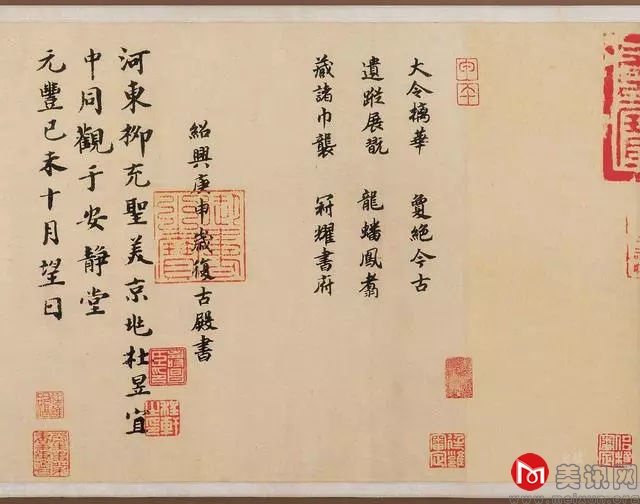 大令摛華　夐絕今古
遺蹤展翫　龍蟠鳳翥
藏諸巾襲　冠耀書府
紹興庚申歲復古殿書
河東柳充聖美京兆杜昱宜
中同觀于安靜堂
元豐己未十月望日
美讯网